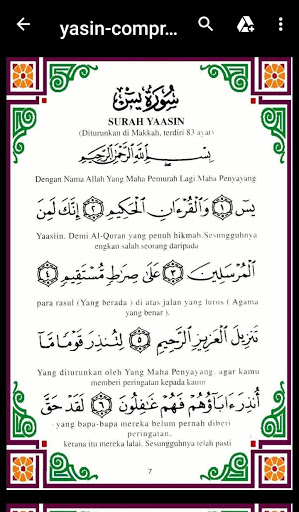 yasin-compr...
سُورَةُ يسٓ
SURAH YAASIN
(Diturunkan di Makkah, terdiri 83 ayat)
بِسْمِ اللَّهِ الرَّحْمَٰنِ الرَّحِيمِ
Dengan Nama Allah Yang Maha Pemurah Lagi Maha Penyayang
يسٓ ﴿١﴾ وَالْقُرْءَانِ الْحَكِيمِ ﴿٢﴾ إِنَّكَ لَمِنَ
Yaasiin. Demi Al-Quran yang penuh hikmah.Sesungguhnya
engkau salah seorang daripada
الْمُرْسَلِينَ ﴿٣﴾ عَلَىٰ صِرَٰطٍ مُّسْتَقِيمٍ ﴿٤﴾
para rasul (Yang berada ) di atas jalan yang lurus ( Agama
yang benar ).
تَنزِيلَ الْعَزِيزِ الرَّحِيمِ ﴿٥﴾ لِتُنذِرَ قَوْمًا مَّا
Yang diturunkan oleh Yang Maha Penyayang. agar kamu
memberi peringatan kepada kaum
أُنذِرَ ءَابَآؤُهُمْ فَهُمْ غَٰفِلُونَ ﴿٦﴾ لَقَدْ حَقَّ
yang bapa-bapa mereka belum pernah diberi
peringatan,
kerana itu mereka lalai. Sesungguhnya telah pasti
7